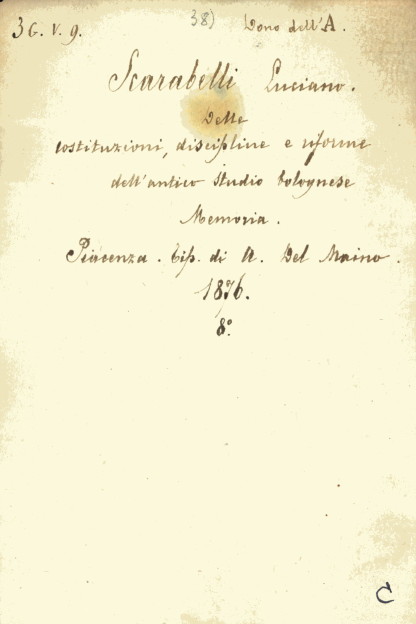 3 G. V. 9.
38)
Dono dell'A.
Scarabelli Luciano.
Delle
costituzioni, discipline e riforme
dell'antico studio bolognese
Memoria.
Piacenza. Tip. di A. Del Maino.
1876.
8.°
C